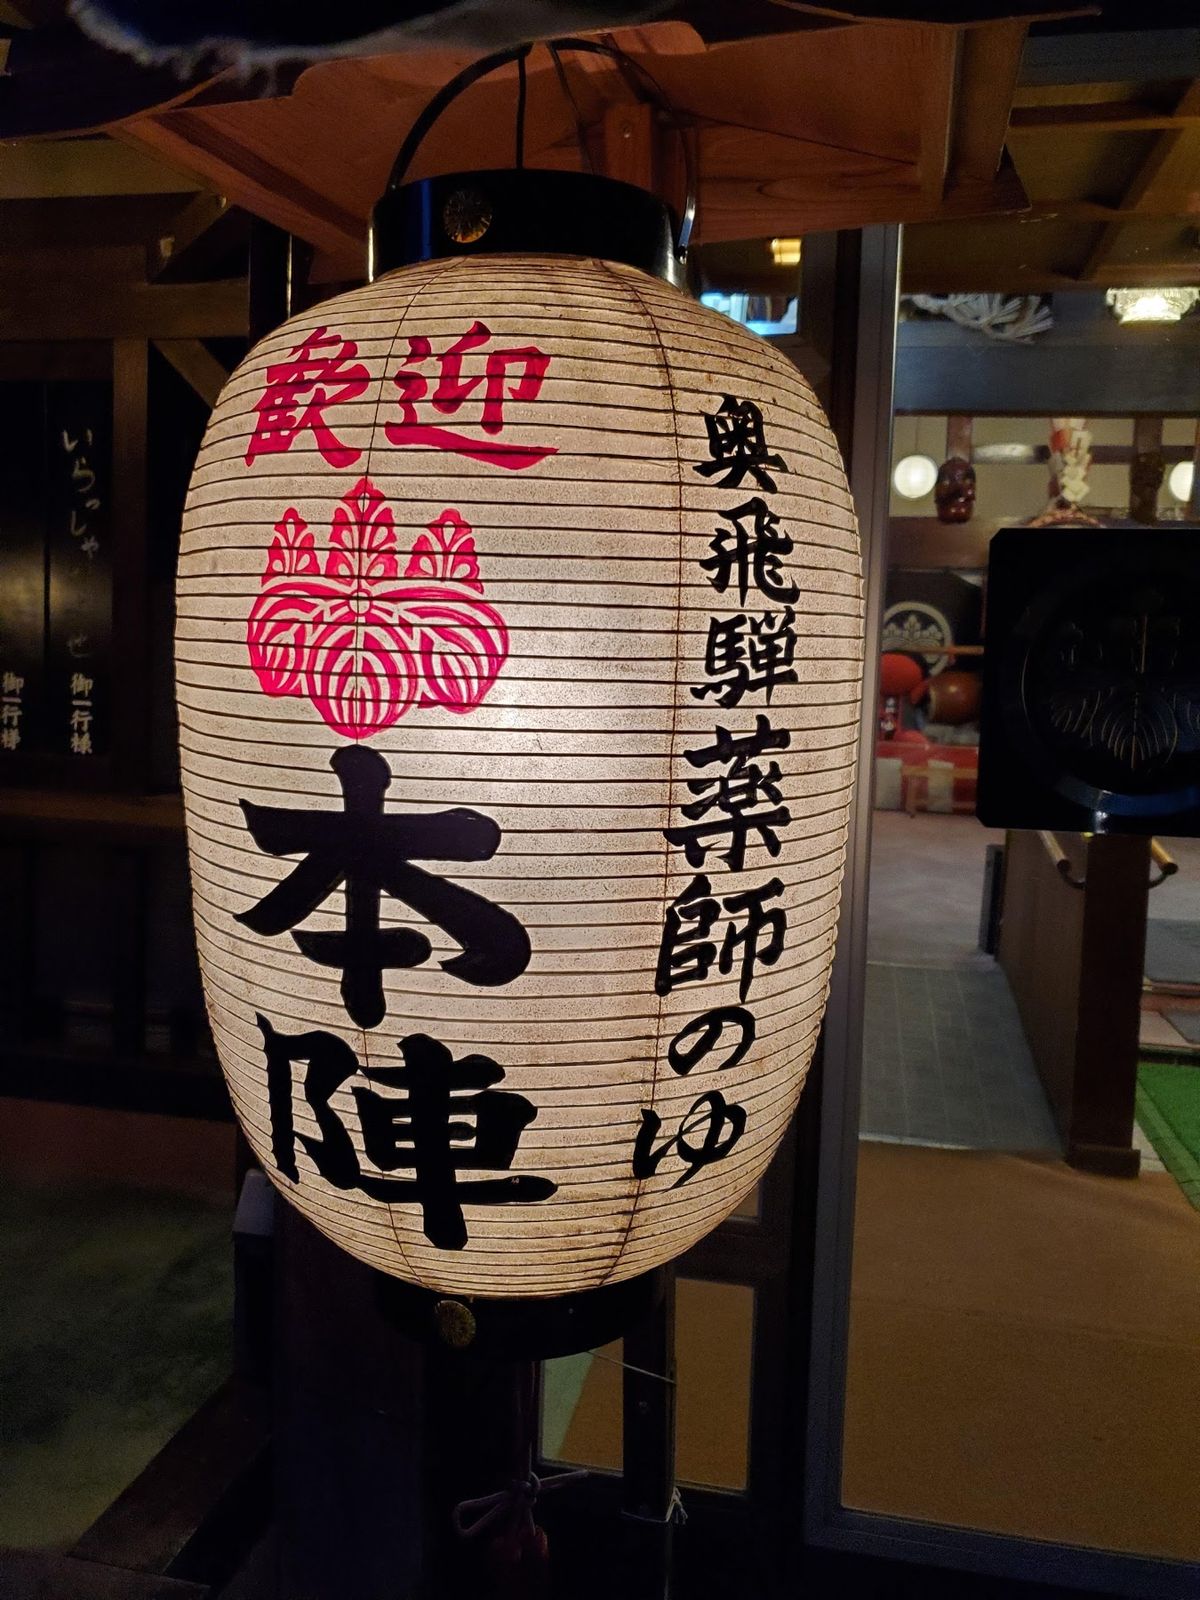 歓迎
本陣
奥飛騨薬師のゆ
いらっしゃ
せ
御一行様
御一行様